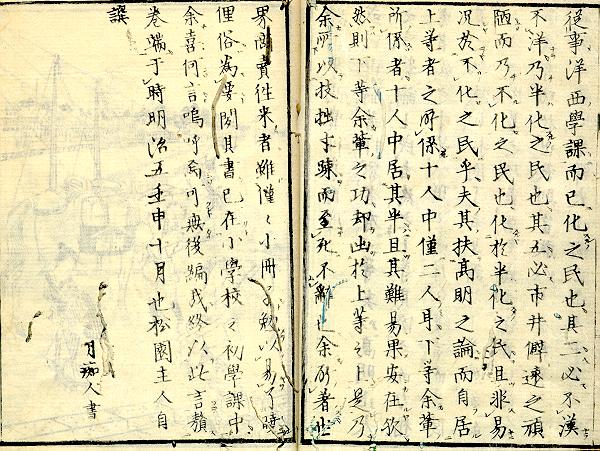 從事洋西學課而已化之民也其二必不漢
不洋乃半化之民也其五必市井僻遠之頑
陋而乃不化之民也化於半化之民且非易
况於不化之民乎夫其扶高明之論而自居
上等者之所係十人中僅二人耳下等余輩
所係者十人中居其半且其難易果安在欤
然則下等余輩之功却出於上等之上是乃
余所以技拙才疎而至死不辭也余所著世
界商賣往來者雖僅々小冊子勉以易了曉
俚俗為要聞其書已在小學校之初學課中
余喜何言嗚呼焉可無後編哉終以此言纇
卷端于時明治五壬申十月也松園主人自
譔
月痴人書